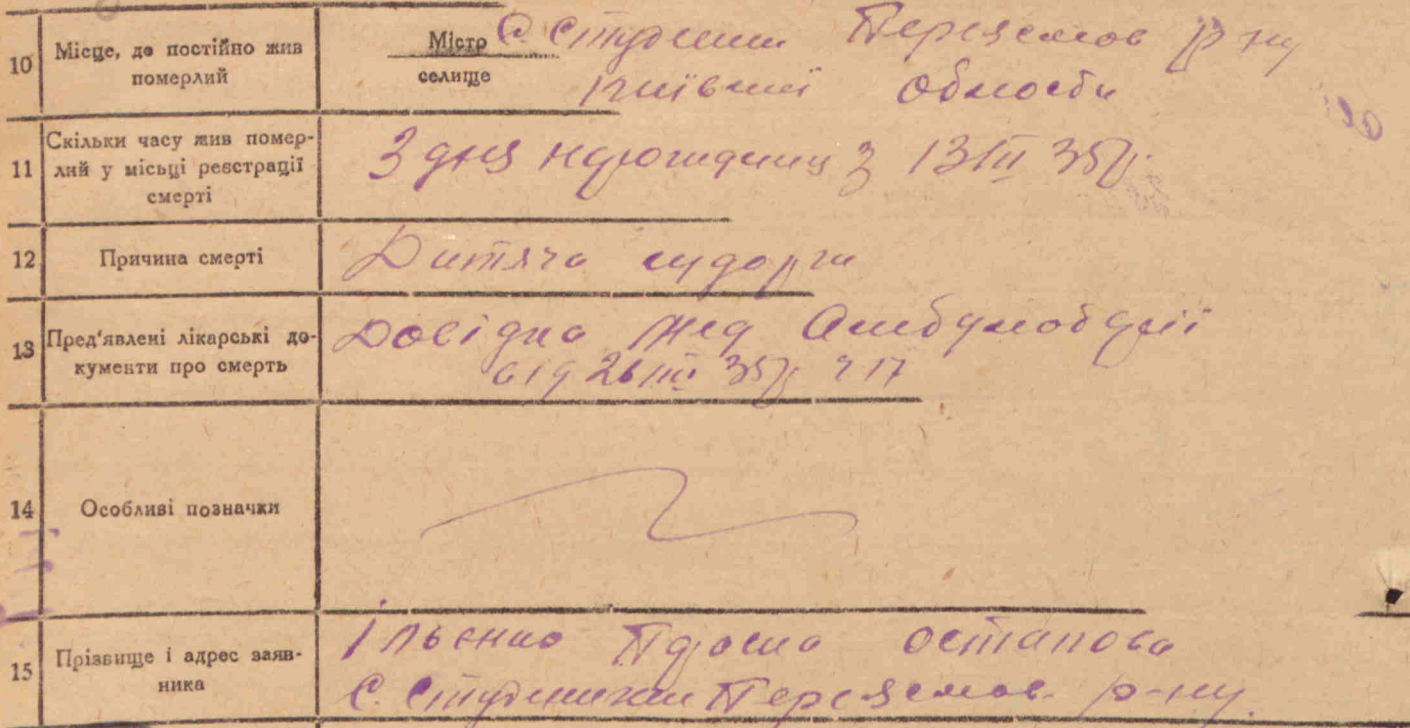 10 Місце, де постійно жив померлий
Місто селище
С Студеники Переяслов р-ну
Київської Области
11 Скільки часу жив помер-
лий у місьці реєстрації
смерті
3 дня 13/III 35р.
12 Причина смерті
Дитяча судорга
13 Пред'явлені лікарські до-
кументи про смерть
Довідка Мед Амбулаторії
від 26/III 35р 217
14 Особливі позначки
15 Прізвище і адрес заяв-
ника
Ільєнко Остапова
С. Студеники Переяслов. р-ну.